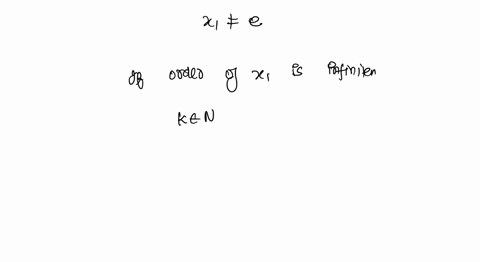 x₁ ≠ e
If order of x₁ is infinite
k ∈ N